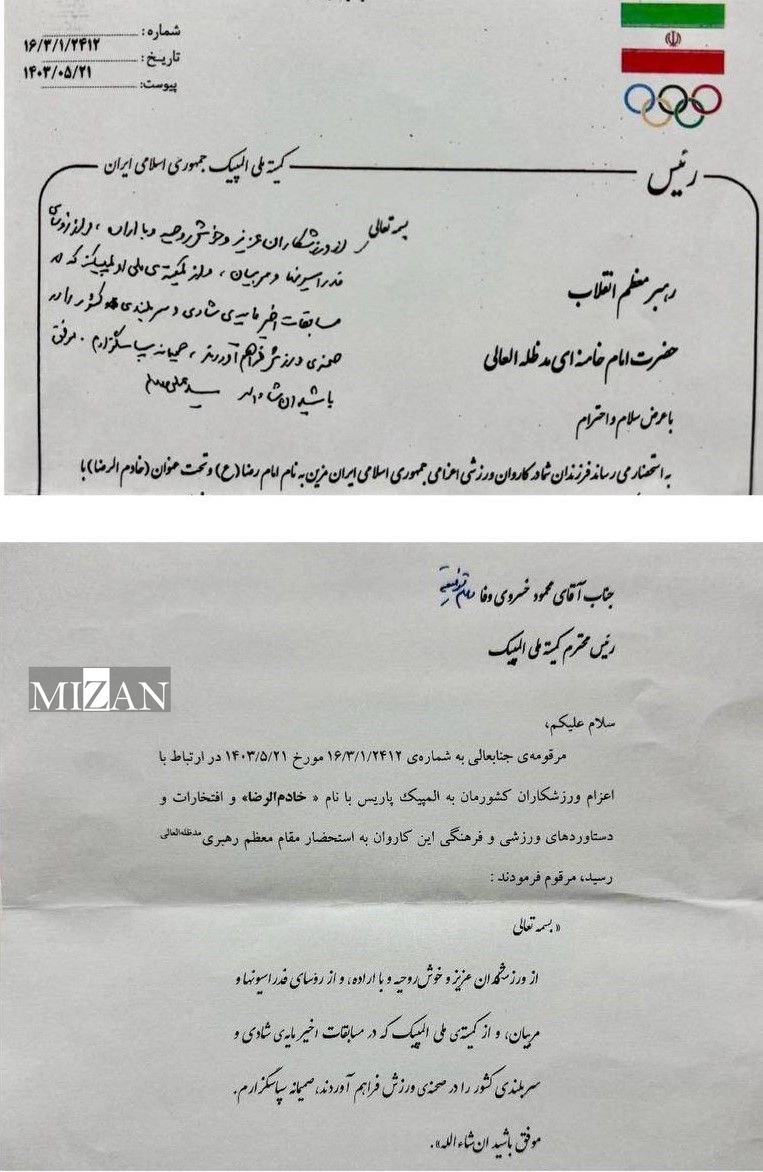 شماره:
۱۶/۳/۱/۲۴۱۲
تاریخ:
۱۴۰۳/۰۵/۲۱
پیوست:
رئیس
کمیته ملی المپیک جمهوری اسلامی ایران
بسمه تعالی
از ورزشکاران عزیز و خوش روحیه و با اراده، و از رؤسای
فدراسیونها و مربیان، و از کمیته‌ی ملی المپیک که در
مسابقات اخیر مایه‌ی شادی و سربلندی کشور را در
صحنه‌ی ورزش فراهم آوردند، صمیمانه سپاسگزارم. موفق
باشید ان شاءالله
رهبر معظم انقلاب
حضرت امام خامنه ای مدظله العالی
با عرض سلام و احترام
به استحضار می رساند فرزندان شما در کاروان ورزشی اعزامی جمهوری اسلامی ایران مزین به نام امام رضا (ع) و تحت عنوان (خادم الرضا) با
جناب آقای محمود خسروی وفا دام توفیقه
رئیس محترم کمیته ملی المپیک
MIZAN
سلام علیکم،
مرقومه‌ی جنابعالی به شماره‌ی ۱۶/۳/۱/۲۴۱۲ مورخ ۱۴۰۳/۵/۲۱ در ارتباط با
اعزام ورزشکاران کشورمان به المپیک پاریس با نام « خادم‌الرضا» و افتخارات و
دستاوردهای ورزشی و فرهنگی این کاروان به استحضار مقام معظم رهبری مدظله‌العالی
رسید، مرقوم فرمودند :
« بسمه تعالی
از ورزشکاران عزیز و خوش‌روحیه و با اراده، و از رؤسای فدراسیونها و
مربیان، و از کمیته‌ی ملی المپیک که در مسابقات اخیر مایه‌ی شادی و
سربلندی کشور را در صحنه‌ی ورزش فراهم آوردند، صمیمانه سپاسگزارم.
موفق باشید ان‌شاءالله».